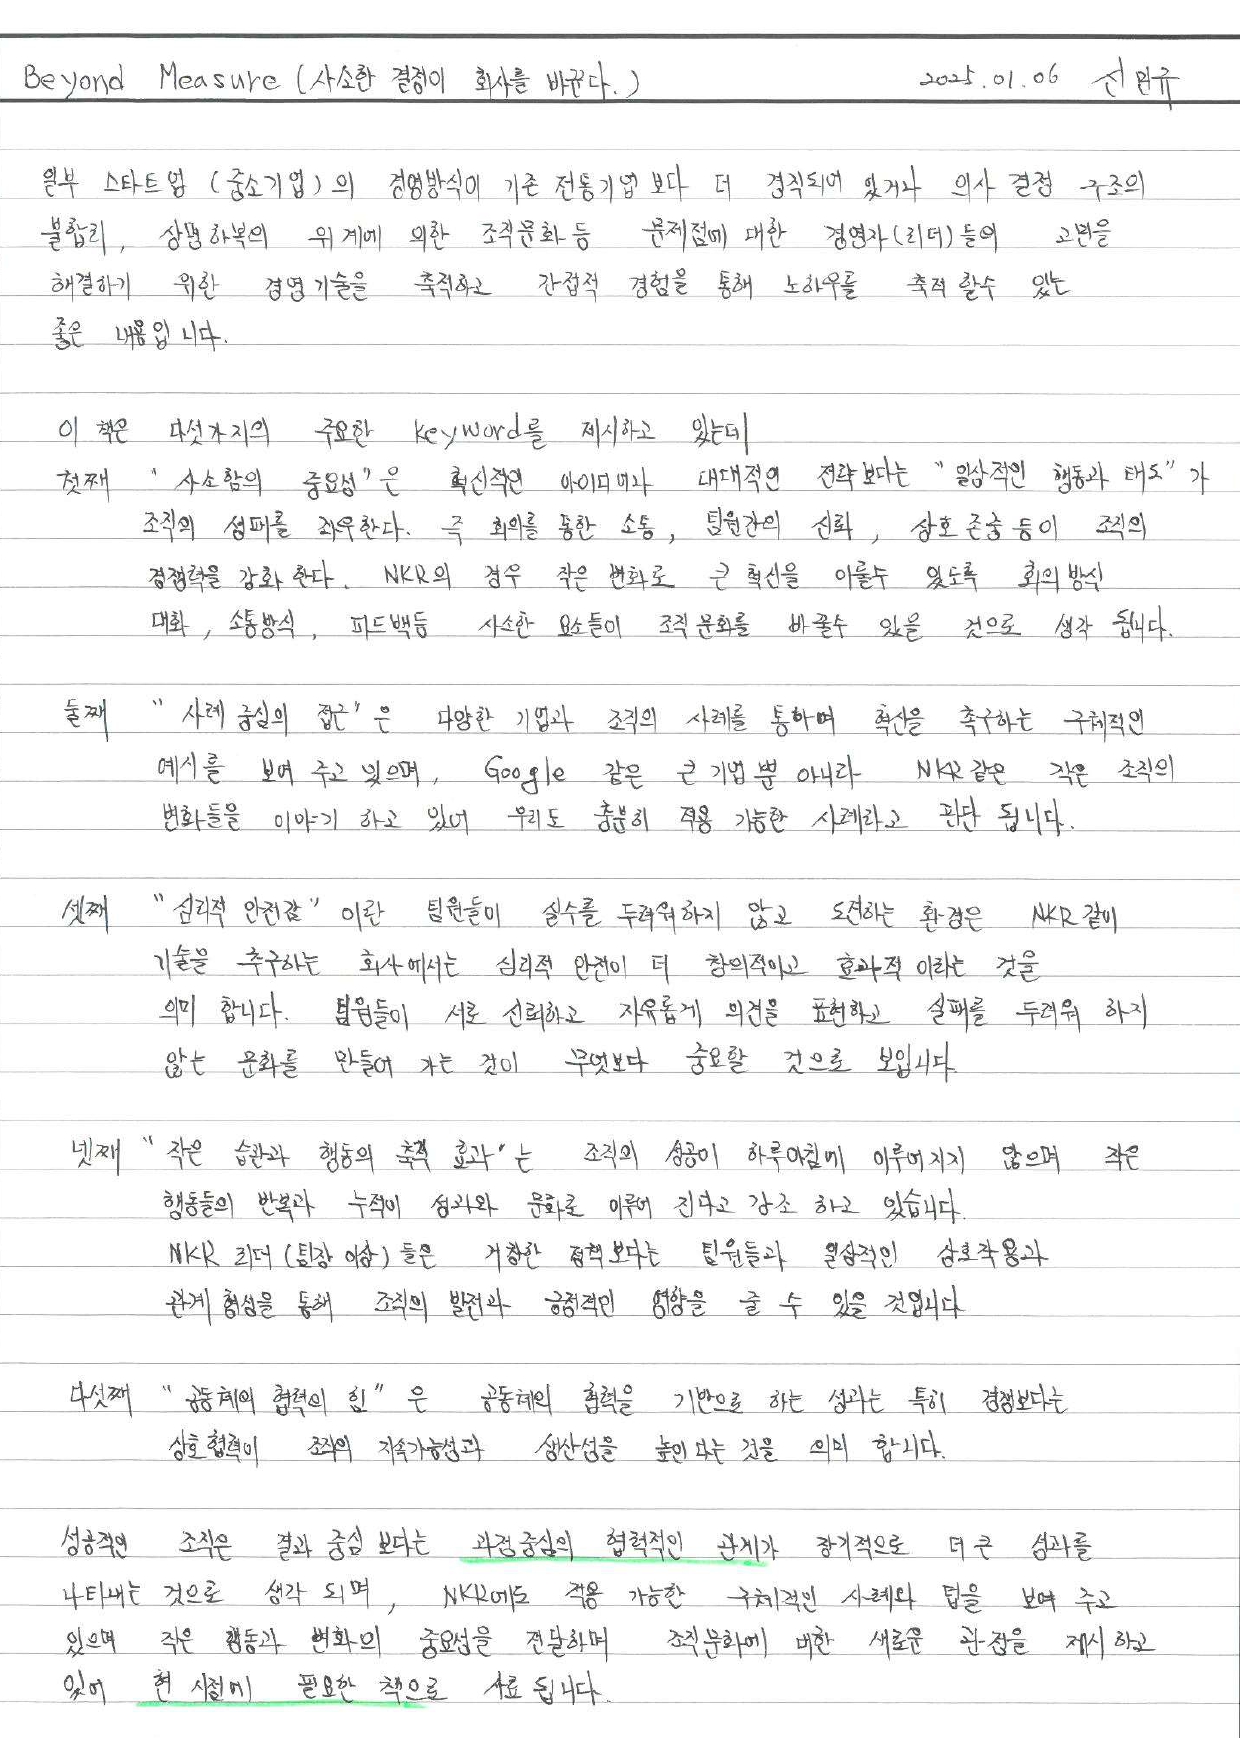 Beyond Measure (사소한 결정이 회사를 바꾼다.) 2025.01.06 신민규
일부 스타트업 (중소기업)의 경영방식이 기존 전통기업보다 더 경직되어 있거나 의사 결정 구조의
불합리, 상명하복의 위계에 의한 조직문화 등 문제점에 대한 경영자(리더)들의 고민을
해결하기 위한 경영기술을 축적하고 간접적 경험을 통해 노하우를 축적 할수 있는
좋은 내용입니다.
이 책은 다섯가지의 주요한 keyword를 제시하고 있는데
첫째 "사소함의 중요성"은 혁신적인 아이디어나 대대적인 전략보다는 "일상적인 행동과 태도"가
조직의 성패를 좌우한다. 즉 회의를 통한 소통, 팀원간의 신뢰, 상호존중 등이 조직의
경쟁력을 강화 한다. NKR의 경우 작은 변화로 큰 혁신을 이룰수 있도록 회의방식
대화, 소통방식, 피드백등 사소한 요소들이 조직문화를 바꿀수 있을 것으로 생각 됩니다.
둘째 "사례 중심의 접근"은 다양한 기업과 조직의 사례를 통하여 혁신을 촉구하는 구체적인
예시를 보여 주고 있으며, Google 같은 큰 기업뿐 아니라 NKR같은 작은 조직의
변화들을 이야기 하고 있어 우리도 충분히 적용 가능한 사례라고 판단 됩니다.
셋째 "심리적 안전감" 이란 팀원들이 실수를 두려워하지 않고 도전하는 환경은 NKR같이
기술을 추구하는 회사에서는 심리적 안전이 더 창의적이고 효과적 이라는 것을
의미 합니다. 팀원들이 서로 신뢰하고 자유롭게 의견을 표현하고 실패를 두려워 하지
않는 문화를 만들어 가는 것이 무엇보다 중요할 것으로 보입니다.
넷째 "작은 습관과 행동의 축적 효과"는 조직의 성공이 하루아침에 이루어지지 않으며 작은
행동들의 반복과 누적이 성과와 문화로 이루어 진다고 강조 하고 있습니다.
NKR 리더 (팀장 이상) 들은 거창한 정책보다는 팀원들과 일상적인 상호작용과
관계 형성을 통해 조직의 발전과 긍정적인 영향을 줄 수 있을 것입니다
다섯째 "공동체의 협력의 힘"은 공동체의 협력을 기반으로 하는 성과는 특히 경쟁보다는
상호협력이 조직의 지속가능성과 생산성을 높인다는 것을 의미 합니다.
성공적인 조직은 결과 중심 보다는 과정중심의 협력적인 관계가 장기적으로 더 큰 성과를
나타내는 것으로 생각 되며, NKR에도 적용 가능한 구체적인 사례와 팁을 보여 주고
있으며 작은 행동과 변화의 중요성을 전달하며 조직문화에 대한 새로운 관점을 제시하고
있어 현 시점에 필요한 책으로 사료 됩니다.